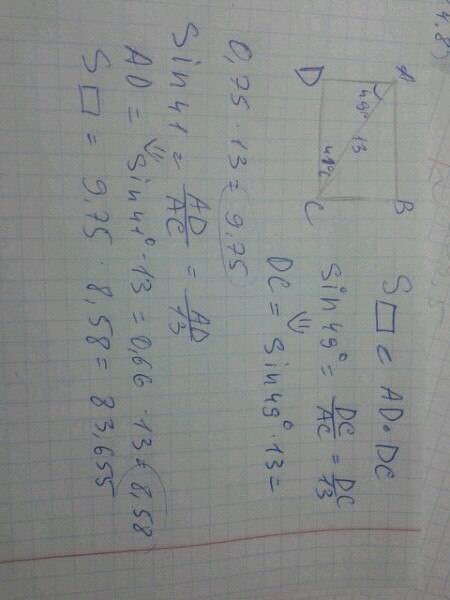 4.8)
A B
49° 13
41°
D C
S□ = AD · DC
sin 49° = DC/AC = DC/13
⇓
DC = sin 49° · 13 =
0,75 · 13 = 9,75
sin 41 = AD/AC = AD/13
⇓
AD = sin 41° · 13 = 0,66 · 13 = 8,58
S□ = 9,75 · 8,58 = 83,655